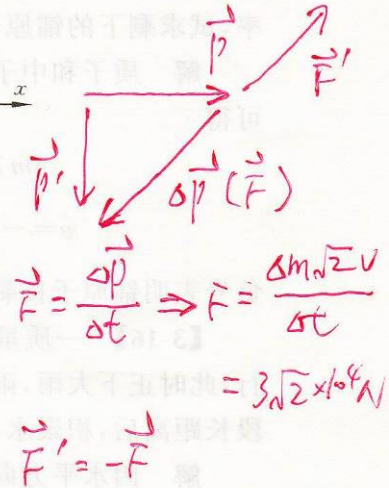 x
p⃗
F⃗'
p⃗'
Δp⃗ (F⃗)
F⃗ = Δp⃗/Δt ⇒ F = Δm√2v/Δt
= 3√2×10⁴N
F⃗' = -F⃗